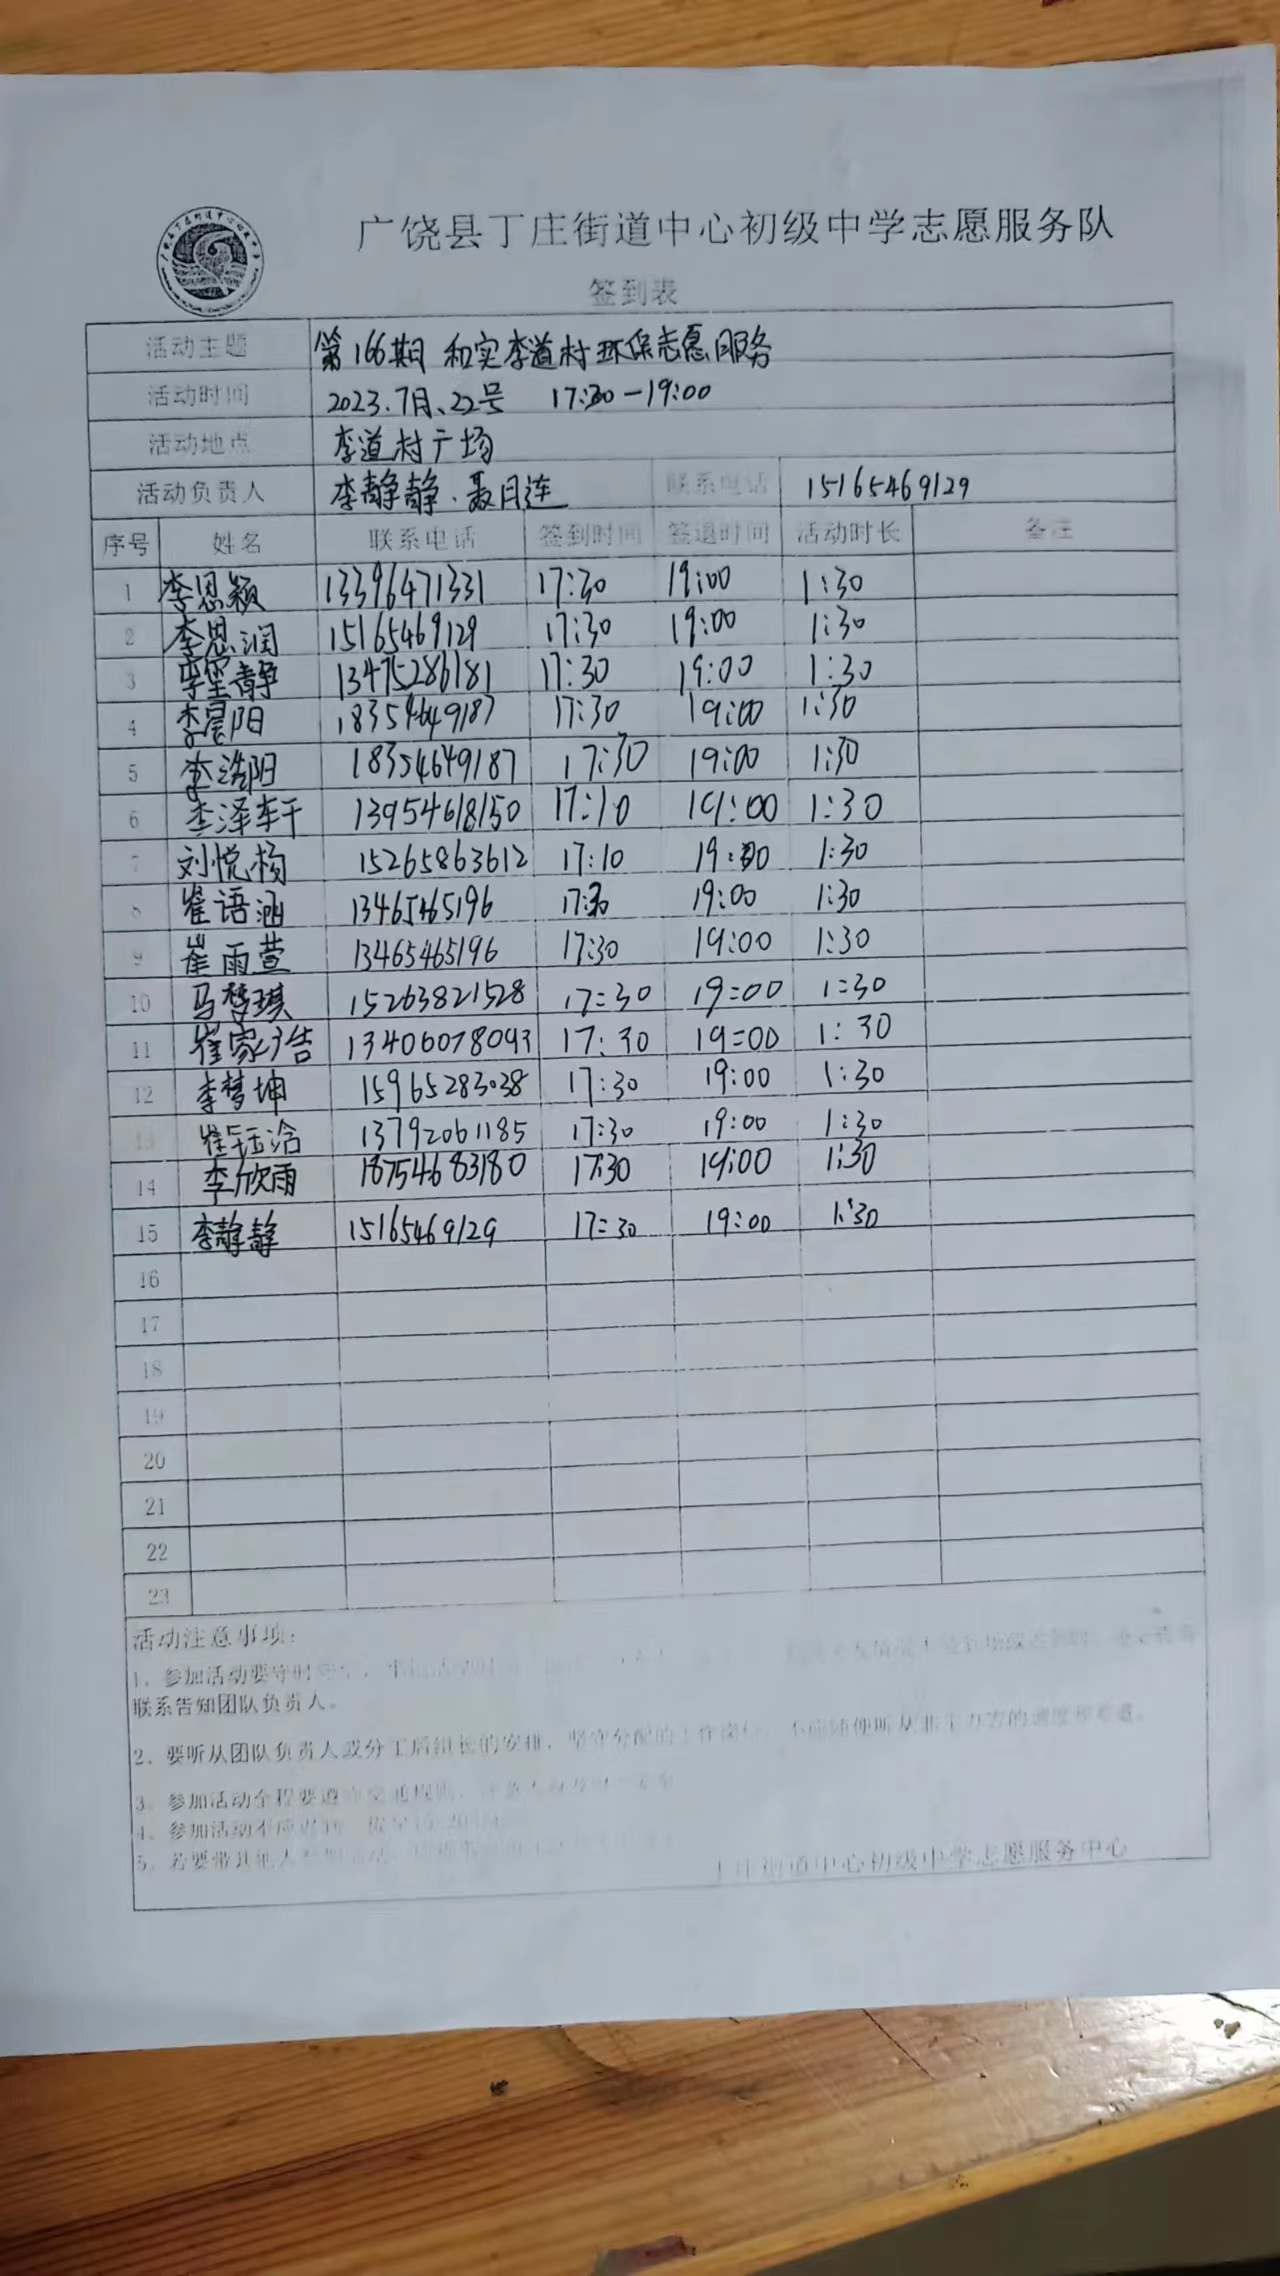 广饶县丁庄街道中心初级中学志愿服务队
签到表
活动主题 第166期 和实李道村环保志愿服务
活动时间 2023.7月.22号 17:30-19:00
活动地点 李道村广场
活动负责人 李静静.聂月连 联系电话 15165469129
序号 姓名 联系电话 签到时间 签退时间 活动时长 备注
1 李恩颖 13396471331 17:30 19:00 1:30
2 李恩润 15165469129 17:30 19:00 1:30
3 李笙静 13475286181 17:30 19:00 1:30
4 李晨阳 18354649187 17:30 19:00 1:30
5 李浩阳 18354649187 17:30 19:00 1:30
6 李泽轩 13954618150 17:10 19:00 1:30
7 刘悦杨 15265863612 17:10 19:00 1:30
8 崔语涵 13465465196 17:30 19:00 1:30
9 崔雨萱 13465465196 17:30 19:00 1:30
10 马梦琪 15263821528 17:30 19:00 1:30
11 崔家浩 13406078093 17:30 19:00 1:30
12 李梦坤 15965283038 17:30 19:00 1:30
13 崔钰涵 13792061185 17:30 19:00 1:30
14 李欣雨 18754683180 17:30 19:00 1:30
15 李静静 15165469129 17:30 19:00 1:30
16
17
18
19
20
21
22
23
活动注意事项：
1、参加活动要守时
联系告知团队负责人。
2、要听从团队负责人或分工后组长的安排，坚守分配的工作岗位，不应随便听从非主办方的调度和看道。
3、参加活动全程要遵守交通规则
4、参加活动不应迟到
5、若要带其他人
丁庄街道中心初级中学志愿服务中心